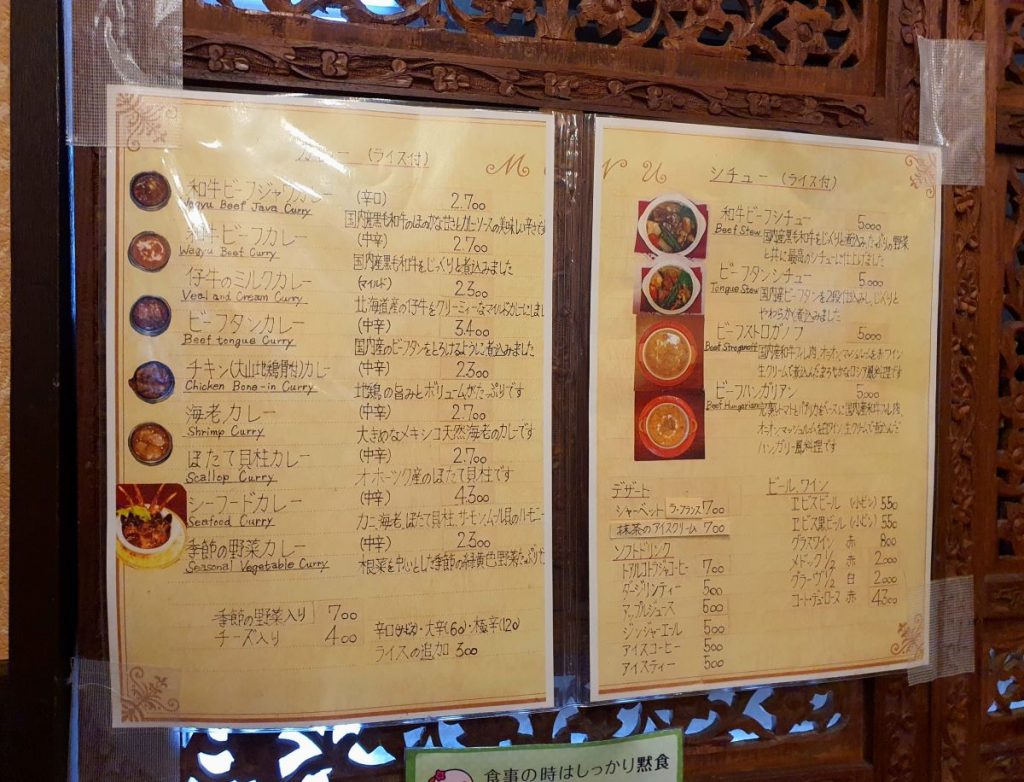 MENU
カレー (ライス付)
和牛ビーフジャワカレー (辛口) 2.700
Wagyu Beef Java Curry
国内産黒毛和牛のほのかな甘さとカレーソースの美味しい辛さで
和牛ビーフカレー (中辛) 2.700
Wagyu Beef Curry
国内産黒毛和牛をじっくりと煮込みました
仔牛のミルクカレー (マイルド) 2.300
Veal and Cream Curry
北海道産の仔牛をクリーミィーなマイルドカレーにしまし
ビーフタンカレー (中辛) 3.400
Beef tongue Curry
国内産のビーフタンをとろけるように煮込みました
チキン(大山地鶏骨付)カレー (中辛) 2.300
Chicken Bone-in Curry
地鶏の旨みとボリュームがたっぷりです
海老カレー (中辛) 2.700
Shrimp Curry
大きめなメキシコ天然海老のカレーです
ほたて貝柱カレー (中辛) 2.700
Scallop Curry
オホーツク産のほたて貝柱です
シーフードカレー (中辛) 4.300
Seafood Curry
カニ、海老、ほたて貝柱、サーモン、ムール貝のハーモニー
季節の野菜カレー (中辛) 2.300
Seasonal Vegetable Curry
根菜を中心とした季節の緑黄色野菜たっぷりた
季節の野菜入り 700
チーズ入り 400
大辛(60)・極辛(120)
ライスの追加 300
シチュー (ライス付)
和牛ビーフシチュー 5.000
Beef Stew
国内産黒毛和牛をじっくりと煮込みたっぷりの野菜
と共に最高のシチューに仕上げました
ビーフタンシチュー 5.000
Tongue Stew
国内産ビーフタンを2段仕込みし、じっくりと
やわらかく煮込みました
ビーフストロガノフ 5.000
Beef Stroganoff
国内産和牛フィレ肉、オニオン、マッシュルームを赤ワイン
生クリームで煮込んだまろやかなロシア風料理です
ビーフハンガリアン 5.000
Beef Hungarian
完熟トマトとパプリカをベースに国内産和牛フィレ肉、
オニオン、マッシュルームを白ワイン、生クリームで煮込んだ
ハンガリー風料理です
デザート
シャーベット ラ・フランス 700
抹茶のアイスクリーム 700
ソフトドリンク
トアルコトラジャコーヒー 700
ダージリンティー 500
アップルジュース 600
ジンジャーエール 500
アイスコーヒー 500
アイスティー 500
ビール、ワイン
ヱビスビール (小ビン) 550
ヱビス黒ビール (小ビン) 550
グラスワイン 赤 800
メドック1/2 赤 2.000
グラーヴ1/2 白 2.000
コート・デュ・ローヌ 赤 4.300
食事の時はしっかり黙食